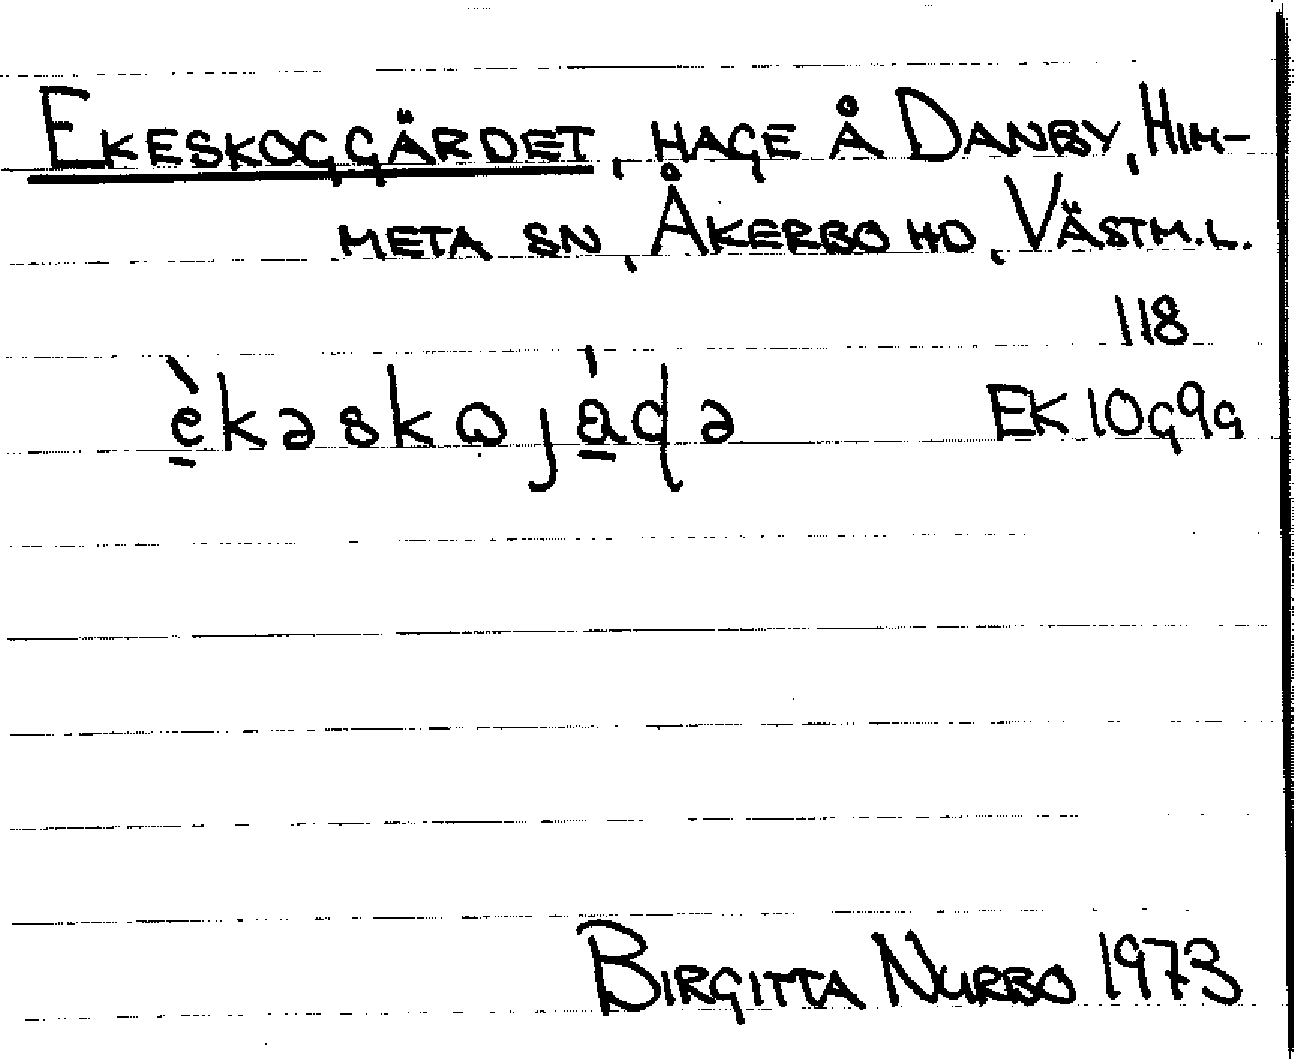 EKESKOGGÄRDET, HAGE Å DANBY, HIM-
META SN, ÅKERBO HD, VÄSTM.L.
118
è̠kəskɷjá̠ɖə EK 10g9g
BIRGITTA NURBO 1973